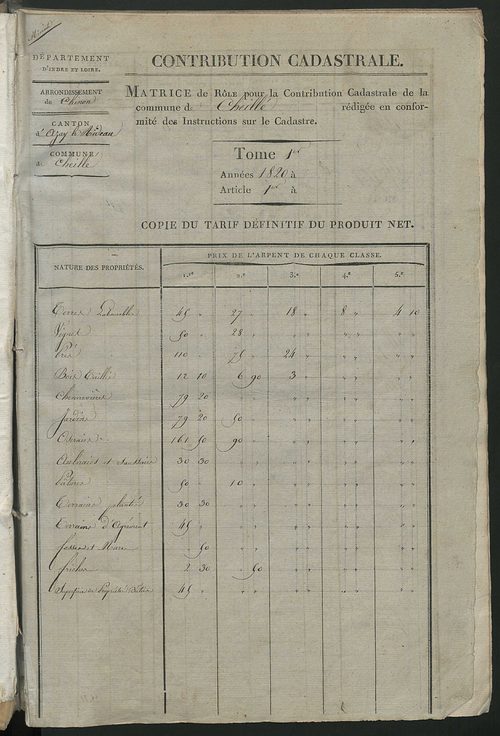 Minute
DÉPARTEMENT
D'INDRE ET LOIRE.
ARRONDISSEMENT
de Chinon
CANTON
d'Azay le Rideau
COMMUNE
de Cheillé
CONTRIBUTION CADASTRALE.
MATRICE de RÔLE pour la Contribution Cadastrale de la
commune de Cheillé rédigée en confor-
mité des Instructions sur le Cadastre.
Tome 1er
Années 1820 à
Article 1er à
COPIE DU TARIF DÉFINITIF DU PRODUIT NET.
NATURE DES PROPRIÉTÉS.
PRIX DE L'ARPENT DE CHAQUE CLASSE.
1.re 2.e 3.e 4.e 5.e
Terres Labourables 45 " 27 " 18 " 8 " 4 10
Vignes 50 " 28 " " " " " " "
Prés 110 " 75 " 24 " " " " "
Bois Taillis 12 10 6 90 3 " " " " "
Chennevières 79 20 " " " " " " " "
Jardins 79 20 50 " " " " " " "
Oseraies 161 50 90 " " " " " " "
et 30 30 " " " " " " " "
Pâtures 50 " 10 " " " " " " "
Terrains plantés 30 30 " " " " " " " "
Terrains d'Agrément 45 " " " " " " " " "
fosses et Mares " 50 " " " " " " " "
friches 2 30 " 50 " " " " " "
Superficie des Propriétés Bâties 45 " " " " " " " " "